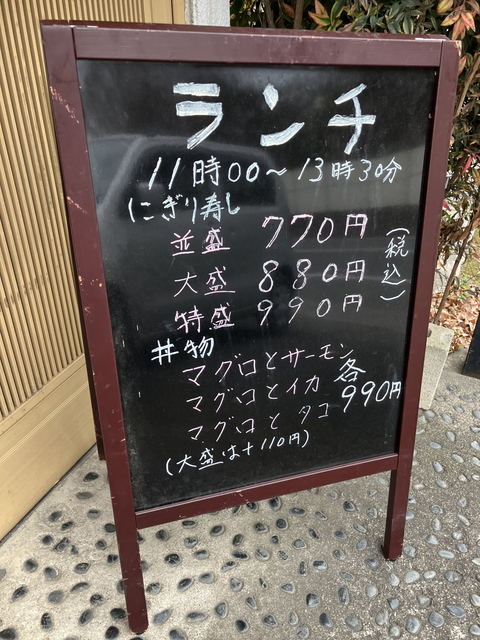 ランチ
11時00～13時30分
にぎり寿し
並盛 770円
大盛 880円
特盛 990円
(税込)
丼物
マグロとサーモン
マグロとイカ
マグロとタコ
各990円
(大盛は＋110円)